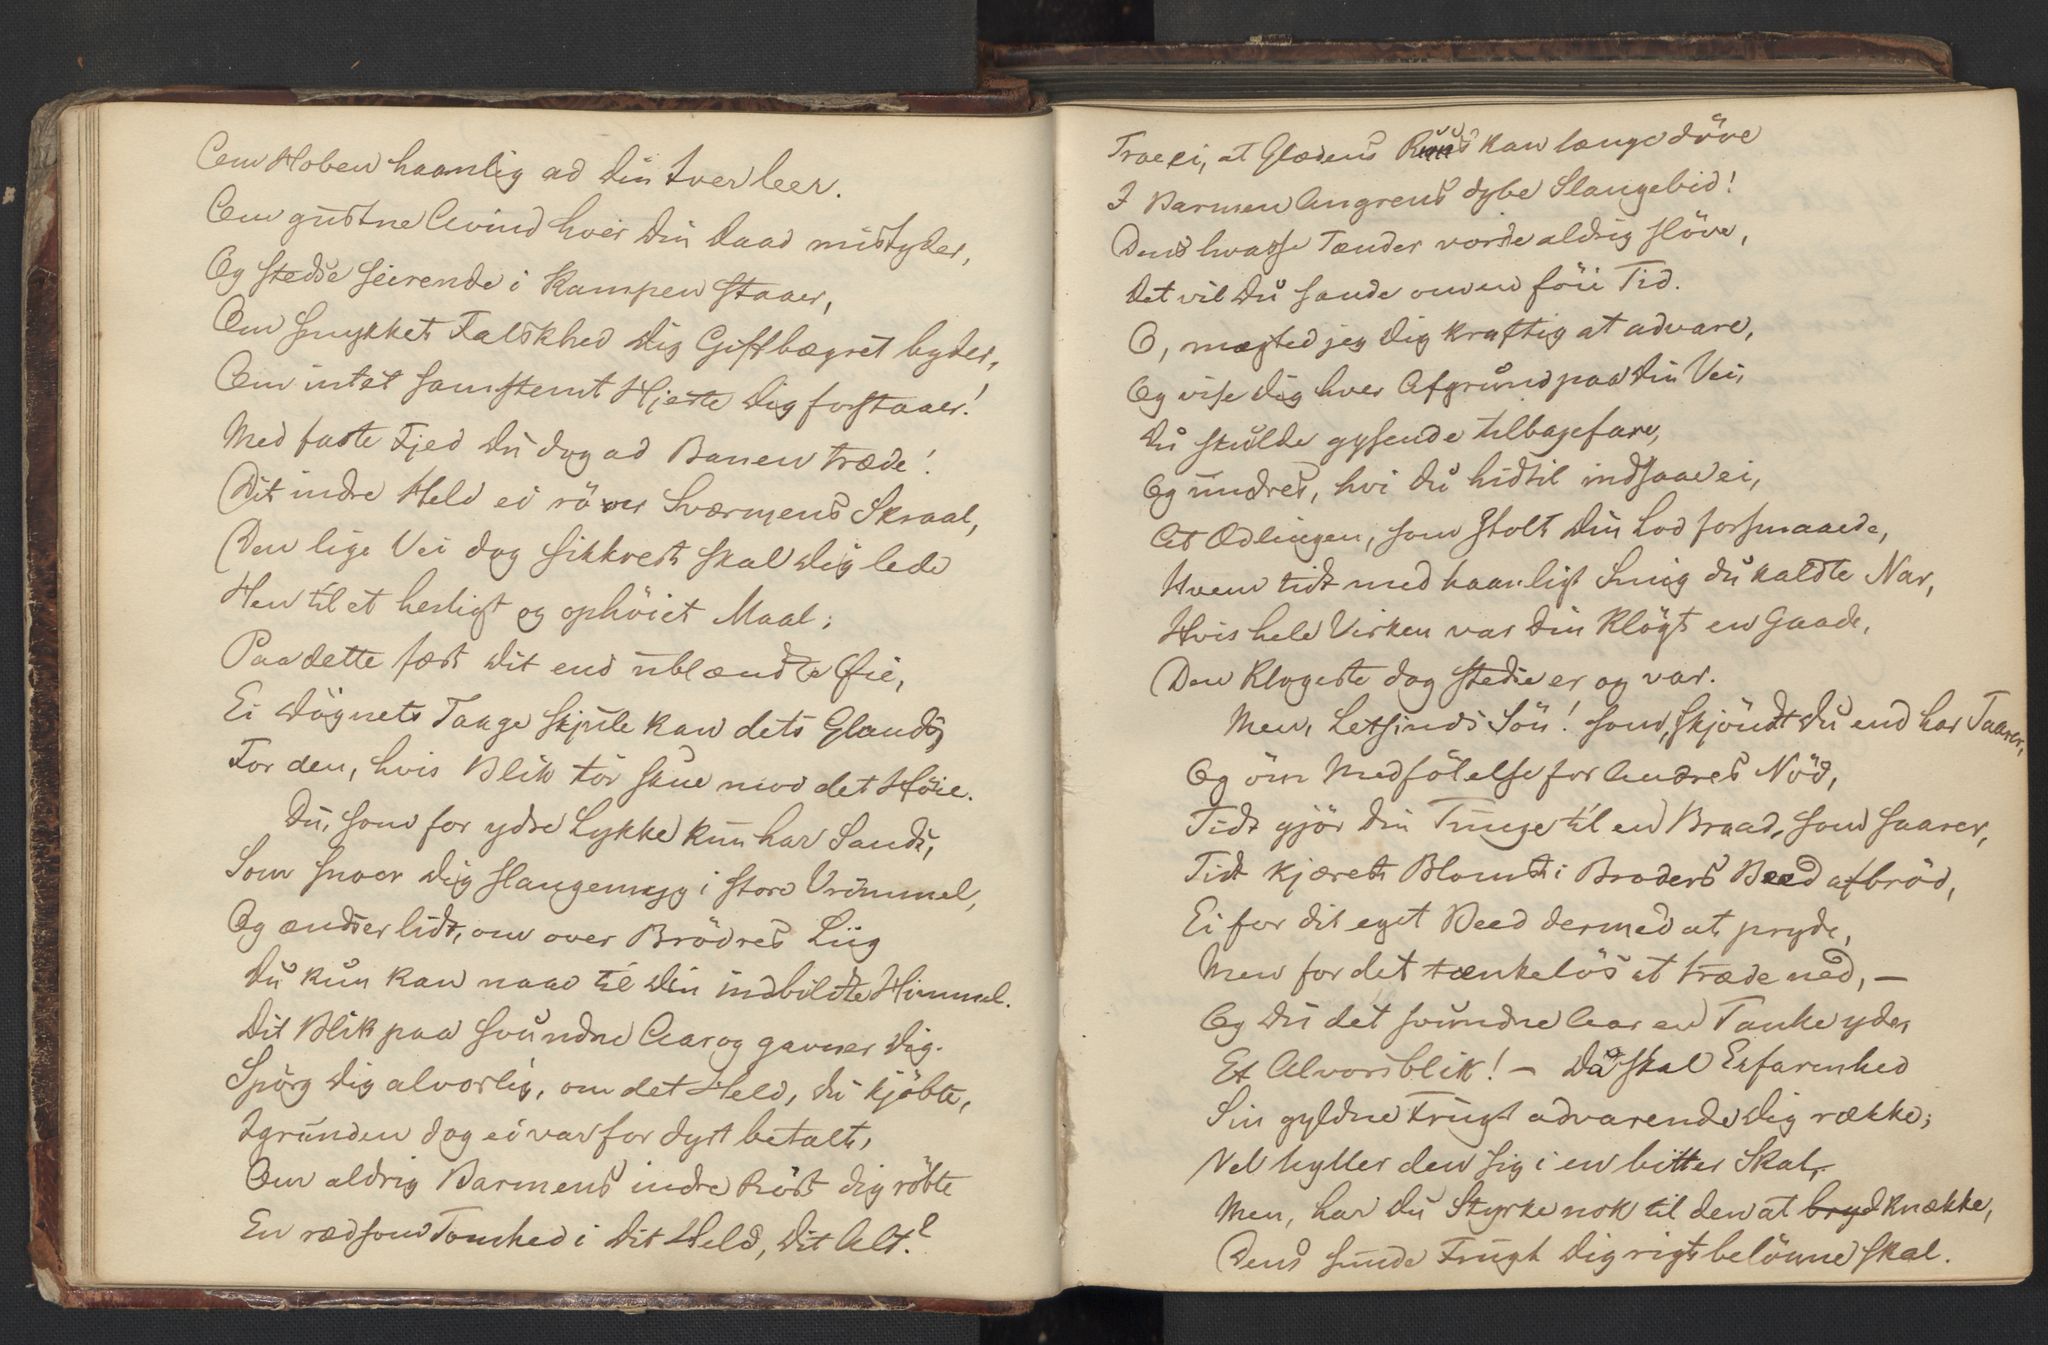 Om Hoben haanlig ad Din Iver leer.
Om gustne Avind hver Din Daad mistyder,
Og stedse seirende i Kampen staaer,
Om smykket Falskhed Dig Giftbægret byder,
Om intet samstemt Hjerte Dig forstaaer!
Med faste Fjed Du dog ad Banen træde!
Dit indre Held ei röver Sværmens Skraal,
Den lige Vei dog sikkrest skal Dig lede
Hen til et herligt og ophöiet Maal;
Paa dette fæst Dit end ublændte Øie,
Ei Dögnets Taage skjule kan dets Glands
For den, hvis Blik tör skue mod det Höie.
Du, som for ydre Lykke kun har Sands,
Som snoer Dig slangemyg i store Vrimmel,
Og ændser lidt, om over Brödres Liig
Du kun kan naae til Din indbildte Himmel.
Dit Blik paa svundne Aar og gavner Dig.
Spörg Dig alvorlig, om det Held, Du kjöbte,
I grunden dog ei var for dyrt betalt,
Om aldrig Barmens indre Röst Dig röbte
En rædsom Tomhed i Dit Held, Dit Alt?
Troe ei, at Glædens Ruus kan længe döve
I Barmen Angrens dybe Slangebid!
Dens hvasse Tænder vorde aldrig slöve,
Det vil Du sande om en föie Tid.
O, mægted jeg Dig kraftig at advare,
Og vise Dig hver Afgrund paa Din Vei,
Du skulde gysende tilbagefare,
Og undres, hvi Du hidtil indsaae ei,
At Ædlingen, som stolt Din Lod forsmaaede,
Hvem tidt med haanligt Smiig Du kaldte Nar,
Hvis hele Virken var Din Klögt en Gaade,
Den Klogeste dog stedse er og var.
Men, Letsinds Sön! som, skjöndt Du end har Taarer,
Og öm Medfölelse for Andres Nöd,
Tidt gjör Din Tunge til en Braad, som saarer,
Tidt kjærest Blomst i Broders Beed afbröd,
Ei for dit eget Beed dermed at pryde,
Men for det tænkelös at træde ned, —
Og Du det svundne Aar en Tanke yde,
Et Alvorsblik! — Da skal Erfarenhed
Sin gyldne Frugt advarende Dig række;
Vel hyller den sig i en bitter Skal,
Men, har Du Styrke nok til den at bryd knække,
Dens sunde Frugt Dig rigt belönne skal.